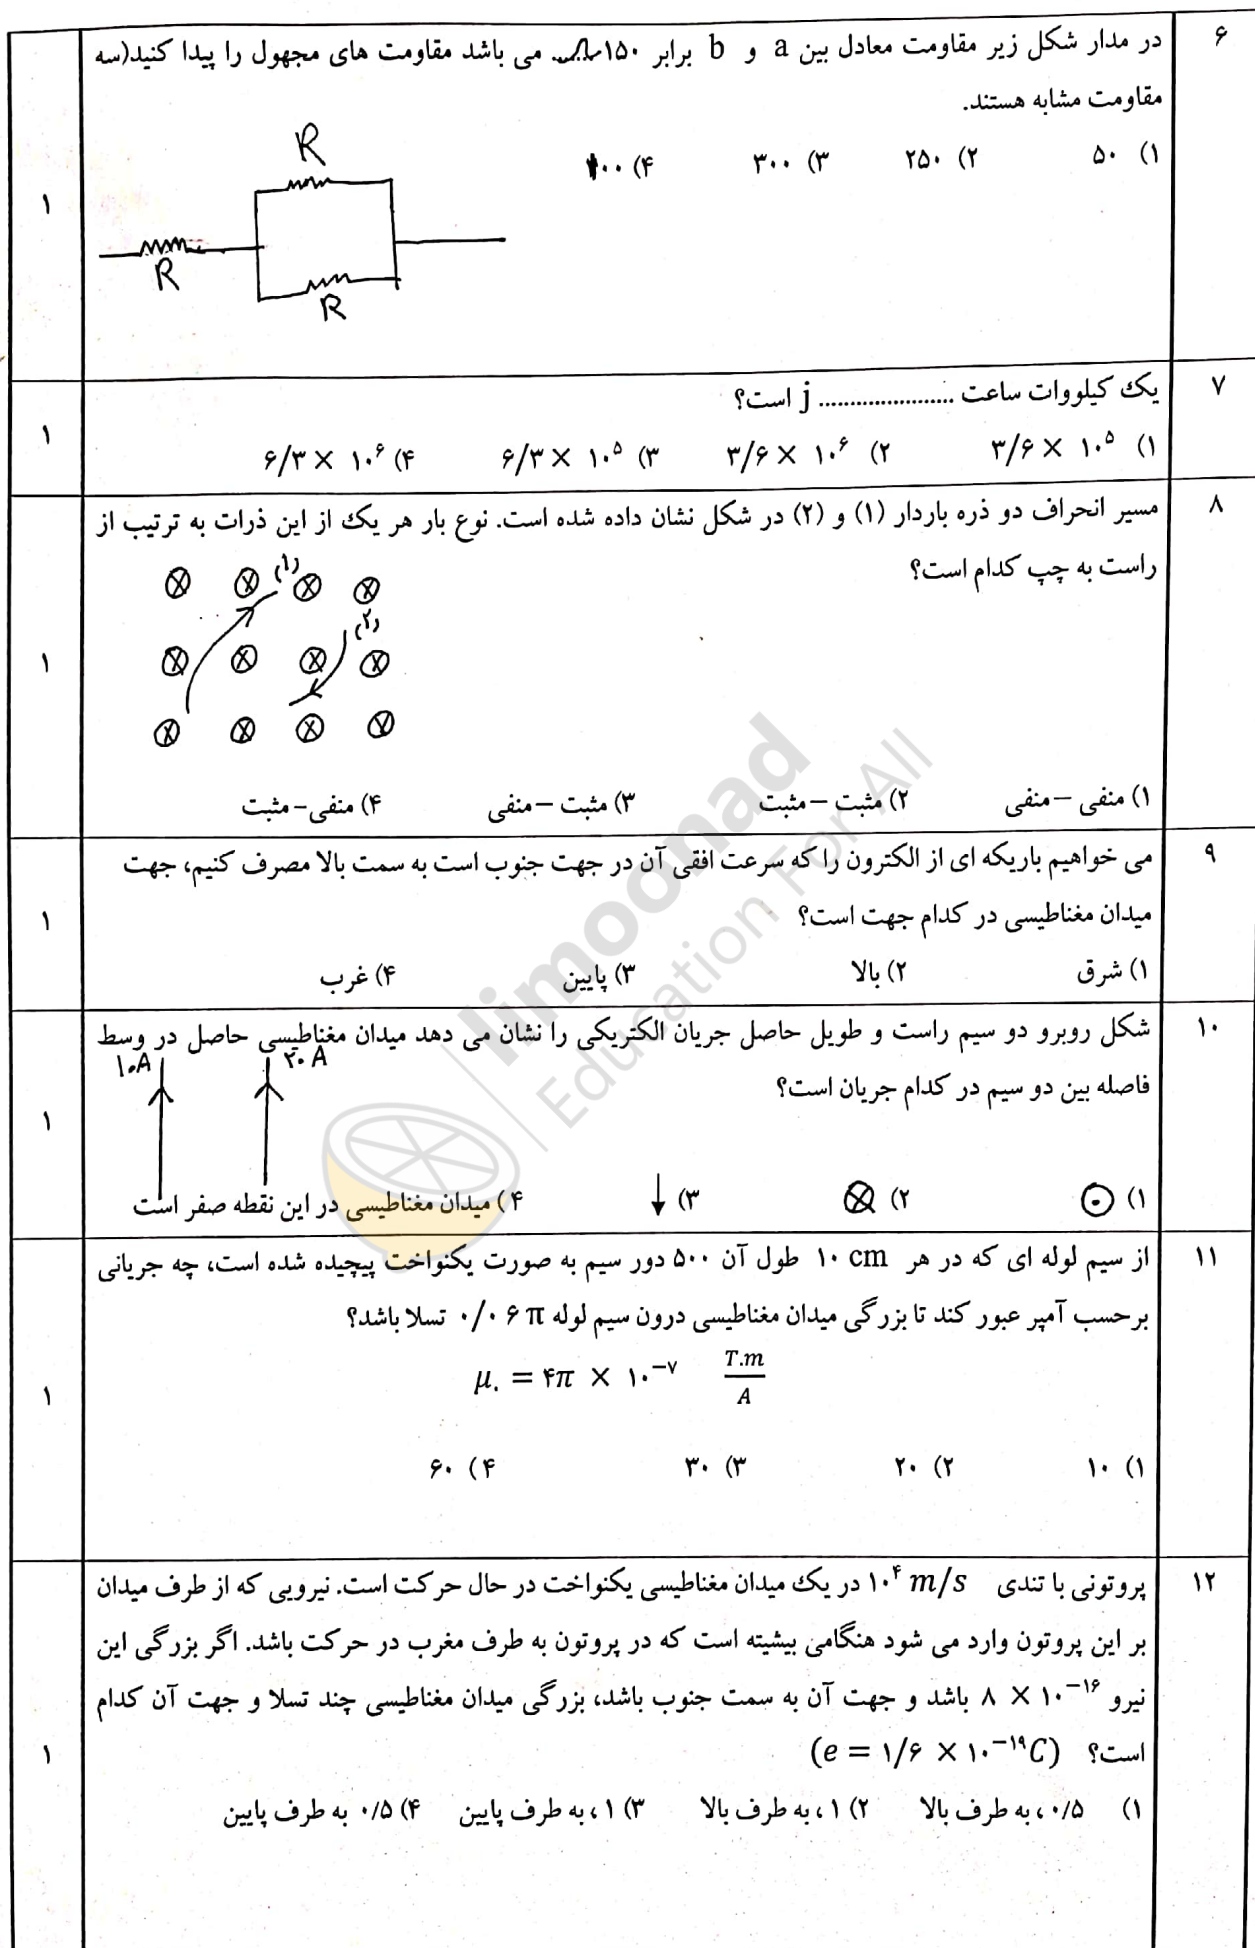 ۶
در مدار شکل زیر مقاومت معادل بین a و b برابر ۱۵۰ می باشد مقاومت های مجهول را پیدا کنید(سه
مقاومت مشابه هستند.
۱) ۵۰ ۲) ۲۵۰ ۳) ۳۰۰ ۴) ۱۰۰
R
R
R
۱
۷
یک کیلووات ساعت ...................... j است؟
۱) ۳/۶ × ۱۰^۵ ۲) ۳/۶ × ۱۰^۶ ۳) ۶/۳ × ۱۰^۵ ۴) ۶/۳ × ۱۰^۶
۱
۸
مسیر انحراف دو ذره باردار (۱) و (۲) در شکل نشان داده شده است. نوع بار هر یک از این ذرات به ترتیب از
راست به چپ کدام است؟
(۱)
(۲)
۱) منفی – منفی ۲) مثبت – مثبت ۳) مثبت – منفی ۴) منفی- مثبت
۱
۹
می خواهیم باریکه ای از الکترون را که سرعت افقی آن در جهت جنوب است به سمت بالا مصرف کنیم، جهت
میدان مغناطیسی در کدام جهت است؟
۱) شرق ۲) بالا ۳) پایین ۴) غرب
۱
۱۰
شکل روبرو دو سیم راست و طویل حاصل جریان الکتریکی را نشان می دهد میدان مغناطیسی حاصل در وسط
فاصله بین دو سیم در کدام جریان است؟
۱۰A ۲۰A
۱) ⊙ ۲) ⊗ ۳) ↓ ۴) میدان مغناطیسی در این نقطه صفر است
۱
۱۱
از سیم لوله ای که در هر ۱۰ cm طول آن ۵۰۰ دور سیم به صورت یکنواخت پیچیده شده است، چه جریانی
برحسب آمپر عبور کند تا بزرگی میدان مغناطیسی درون سیم لوله ۰/۰۶π تسلا باشد؟
μ۰ = ۴π × ۱۰^−۷ T.m/A
۱) ۱۰ ۲) ۲۰ ۳) ۳۰ ۴) ۶۰
۱
۱۲
پروتونی با تندی ۱۰^۴ m/s در یک میدان مغناطیسی یکنواخت در حال حرکت است. نیرویی که از طرف میدان
بر این پروتون وارد می شود هنگامی بیشیته است که در پروتون به طرف مغرب در حرکت باشد. اگر بزرگی این
نیرو ۸ × ۱۰^−۱۶ باشد و جهت آن به سمت جنوب باشد، بزرگی میدان مغناطیسی چند تسلا و جهت آن کدام
است؟ (e = ۱/۶ × ۱۰^−۱۹C)
۱) ۰/۵ ، به طرف بالا ۲) ۱ ، به طرف بالا ۳) ۱ ، به طرف پایین ۴) ۰/۵ به طرف پایین
۱
limoonad
Education For All